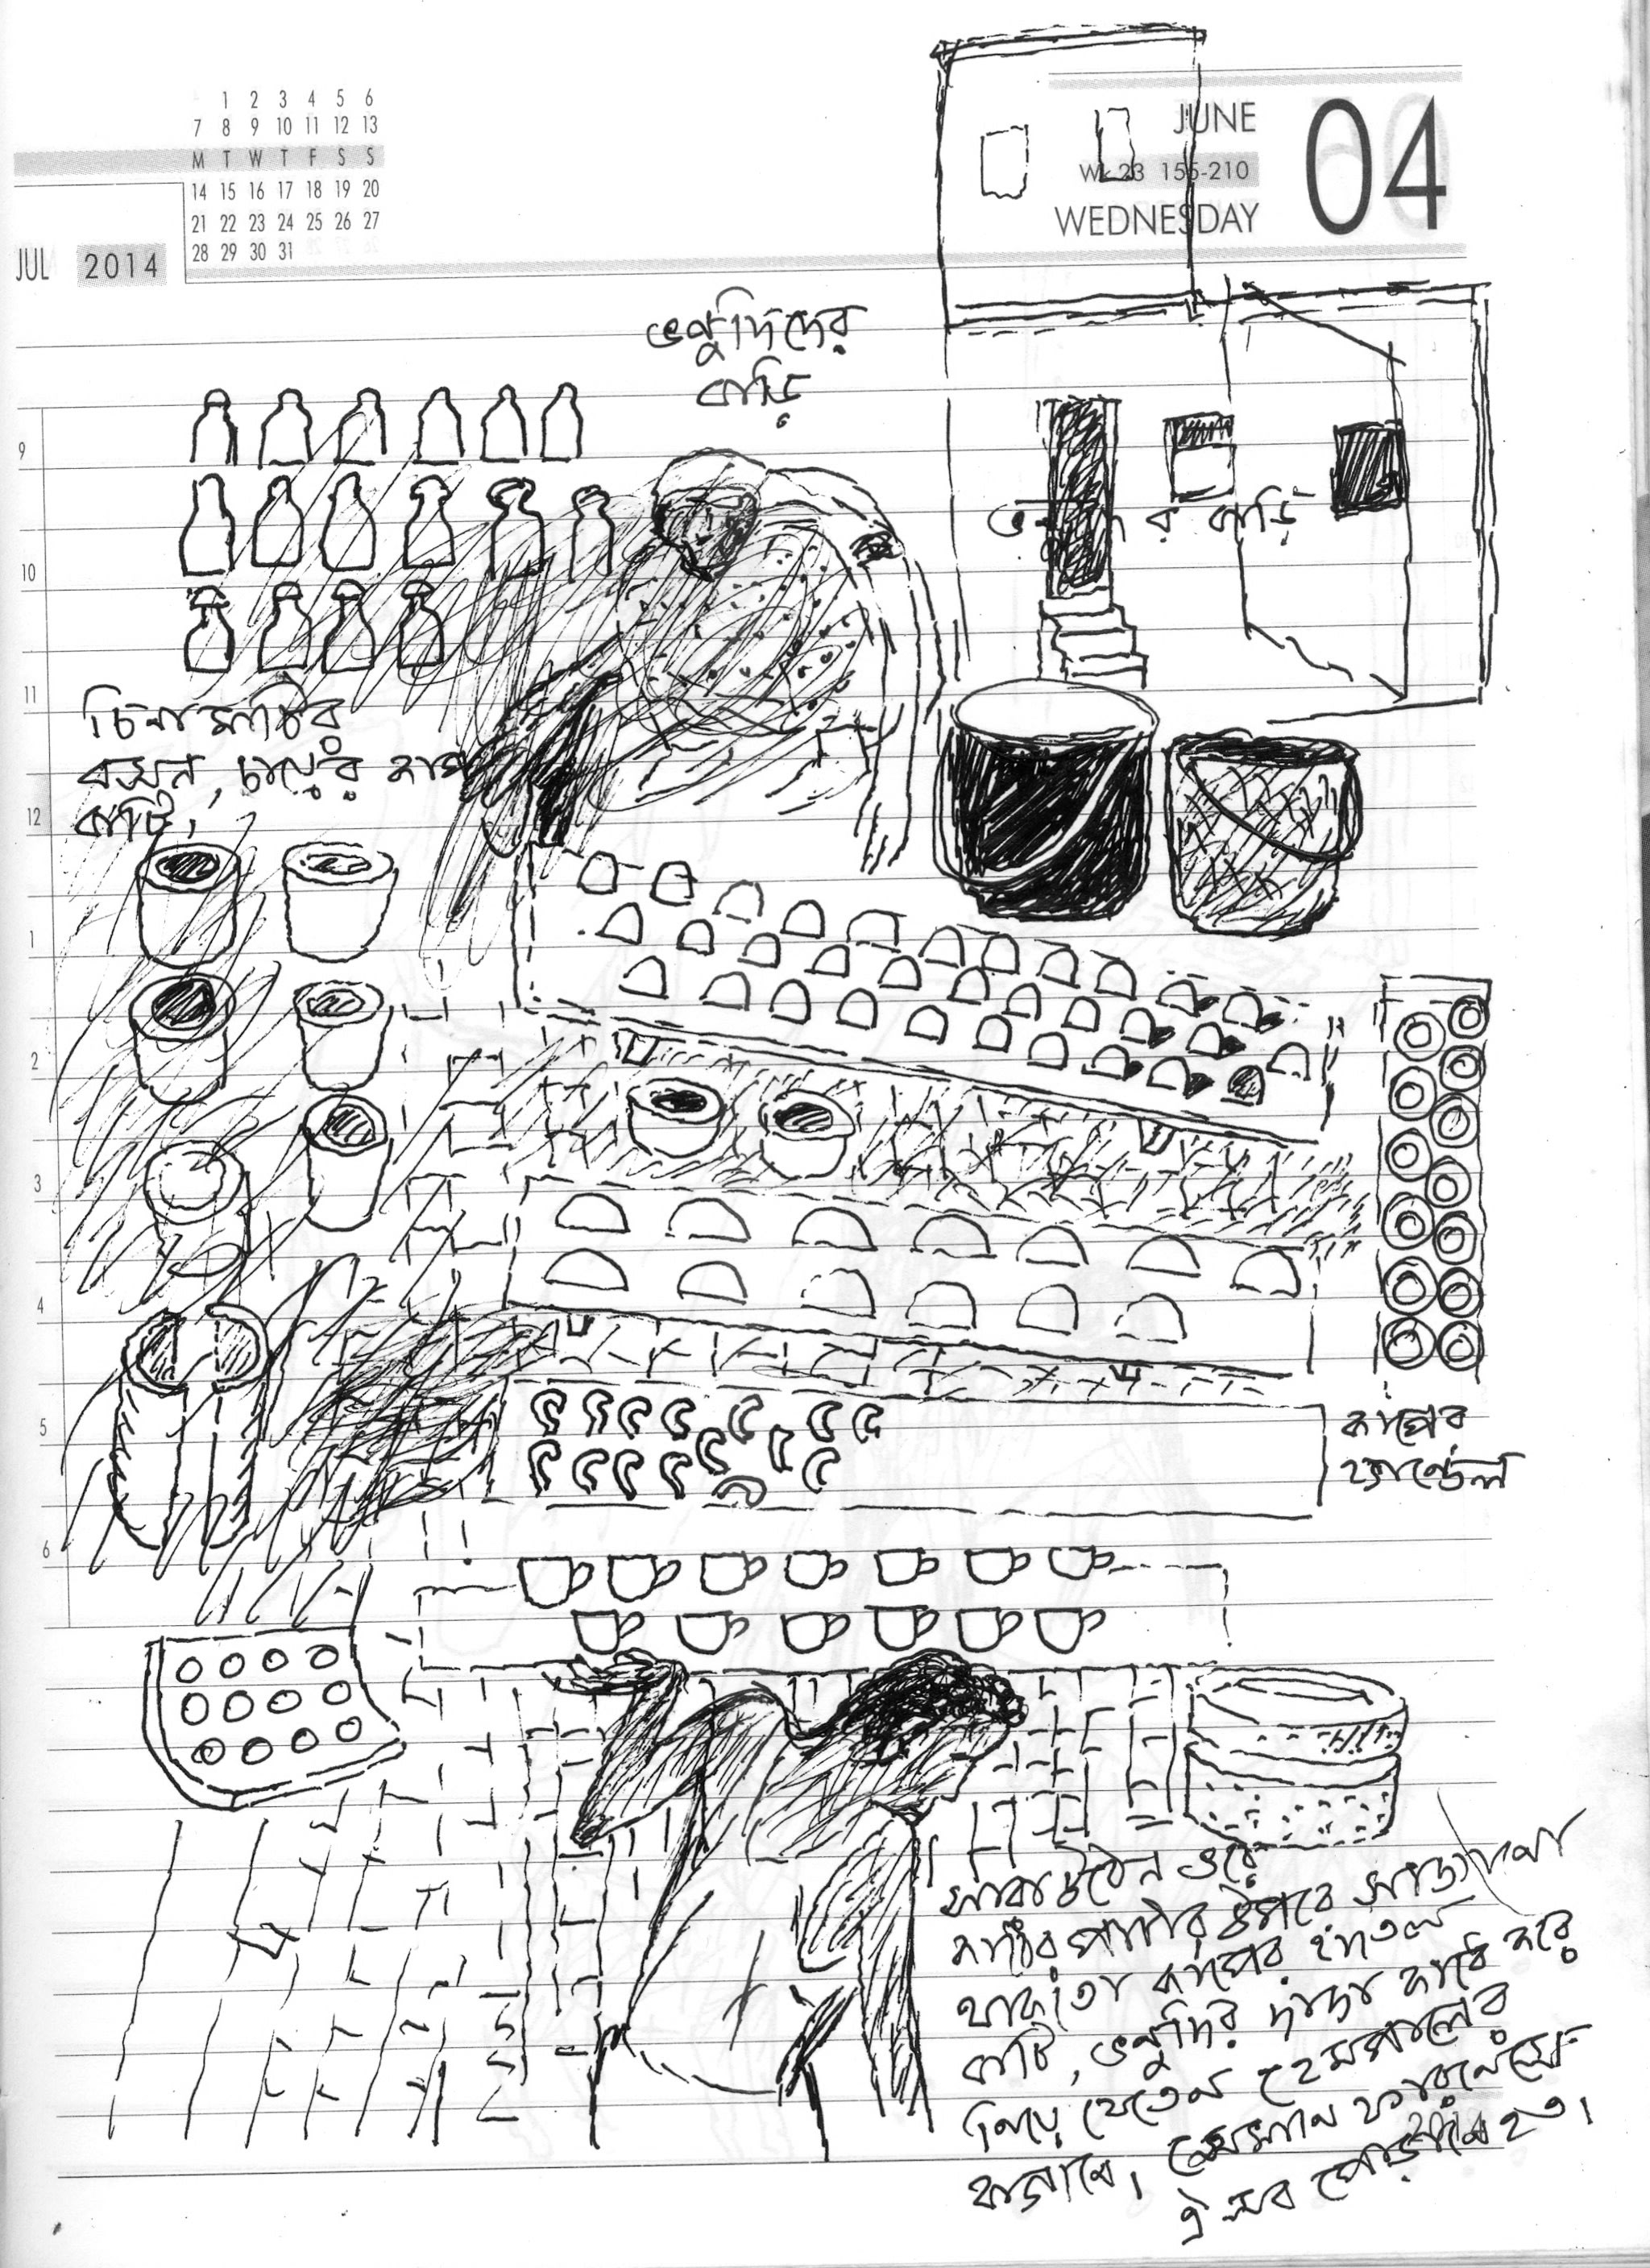 1 2 3 4 5 6
7 8 9 10 11 12 13
M T W T F S S
14 15 16 17 18 19 20
21 22 23 24 25 26 27
28 29 30 31
JUL 2014
JUNE
Wk 23 155-210
WEDNESDAY
04
ভানুদিদের
বাড়ি
র বাড়ি
9
10
11
12
1
2
3
4
5
6
চিনামাটির
বাসন, চায়ের কাপ
বাটি,
কাপের
হ্যান্ডেল
সারা উঠোন ভরে
কাঠের পাটার উপরে সাজানো
থাকতো কাপের হাতল
বাটি, ভানুদির দাদা কাঁধে করে
নিয়ে যেতেন হেমপালের
বাগানে। সেখানে ফারনেসে
ঐ সব পোড়ানো হত।